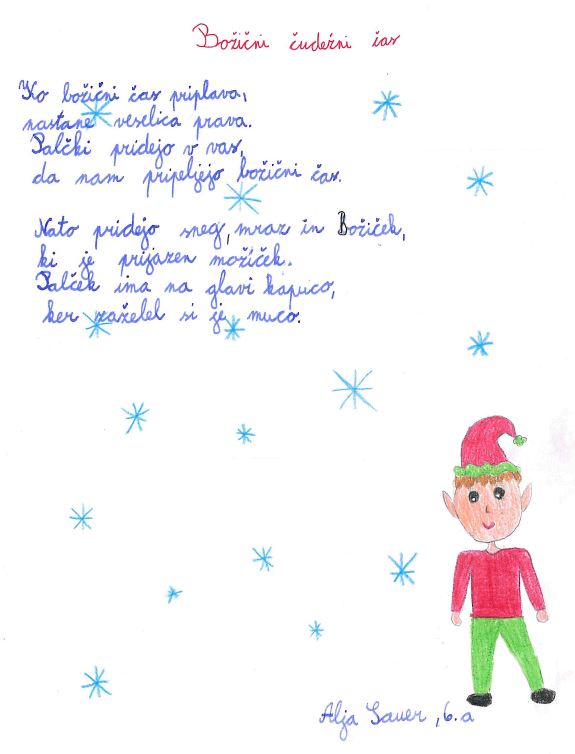 Božični čudežni čas
Ko božični čas priplava,
nastane veselica prava.
Palčki pridejo v vas,
da nam pripeljejo božični čas.
Nato pridejo sneg, mraz in Božiček,
ki je prijazen možiček.
Palček ima na glavi kapuco,
ker zaželel si je muco.
Alja Sauer, 6.a